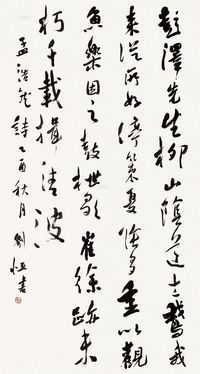 彭澤先生柳山陰道士鵝我
來從所好停策夏陰多重以觀
魚樂因之鼓枻歌崔徐跡未
朽千載揖清波
孟浩然詩乙酉秋月劉恒書